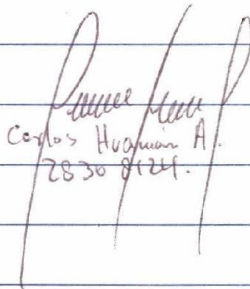 Carlos Huamán A.
2830 8124.